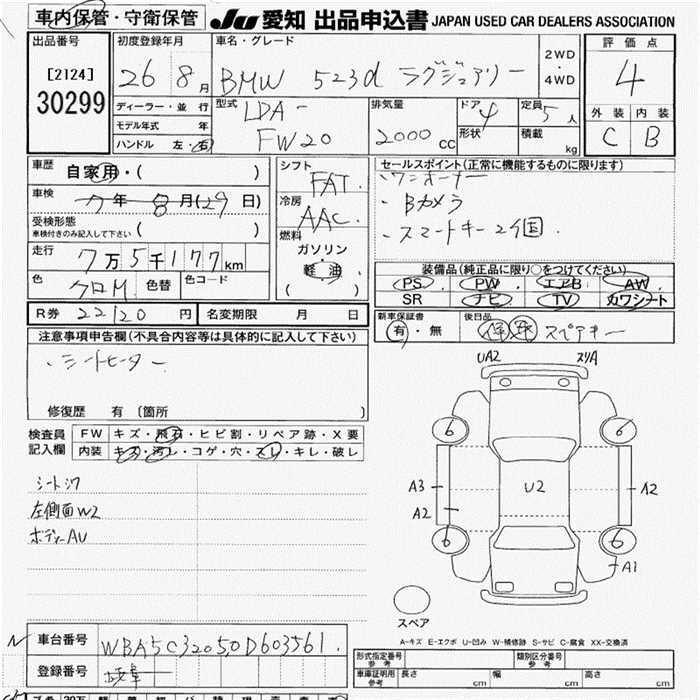 車内保管・守衛保管 JU 愛知 出品申込書 JAPAN USED CAR DEALERS ASSOCIATION
出品番号
[2124]
30299
初度登録年月
26 8月
ディーラー・並行
モデル年式 年
ハンドル 左・右
車名・グレード
BMW 523d ラグジュアリー
2WD
・
4WD
型式 LDA-
FW20
排気量
2000 CC
ドア 4
形状
定員 5人
積載 kg
評価点
4
外装 内装
C B
車歴 自家用・( )
車検 7年8月(29日)
受検形態
車検付きのみ記入して下さい ( )
走行 7万5千177km
色 クロM 色替 色コード
R券 22120円 名変期限 月 日
シフト
FAT
冷房
AAC
燃料
ガソリン
・
軽油
( )
セールスポイント(正常に機能するものに限ります)
・ワンオーナー
・Bカメラ
・スマートキー2個
装備品(純正品に限り○をつけてください)
PS・PW・エアB・AW
SR ナビ・TV・カワシート
新車保証書
有・無
後日品
スペアキー
注意事項申告欄(不具合内容等は具体的に記入して下さい)
・シートヒーター
修復歴 有 〔箇所 〕
検査員
記入欄
FW キズ・飛石・ヒビ割・リペア跡・X要
内装 キズ・汚レ・コゲ・穴・スレ・キレ・破レ
左側面W2
ボディーAU
UA2
A3
A2
U2
A2
A1
6
6
6
6
スペア
A-キズ E-エクボ U-凹み W-補修跡 S-サビ C-腐食 XX-交換済
車台番号 WBA5C32050D603561
登録番号 岐阜
形式指定番号
参考
類別区分番号
参考
車庫証明用
参考
長さ cm 幅 cm 高さ cm